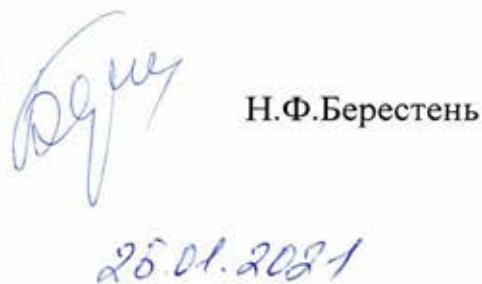 Н.Ф.Берестень
25.01.2021